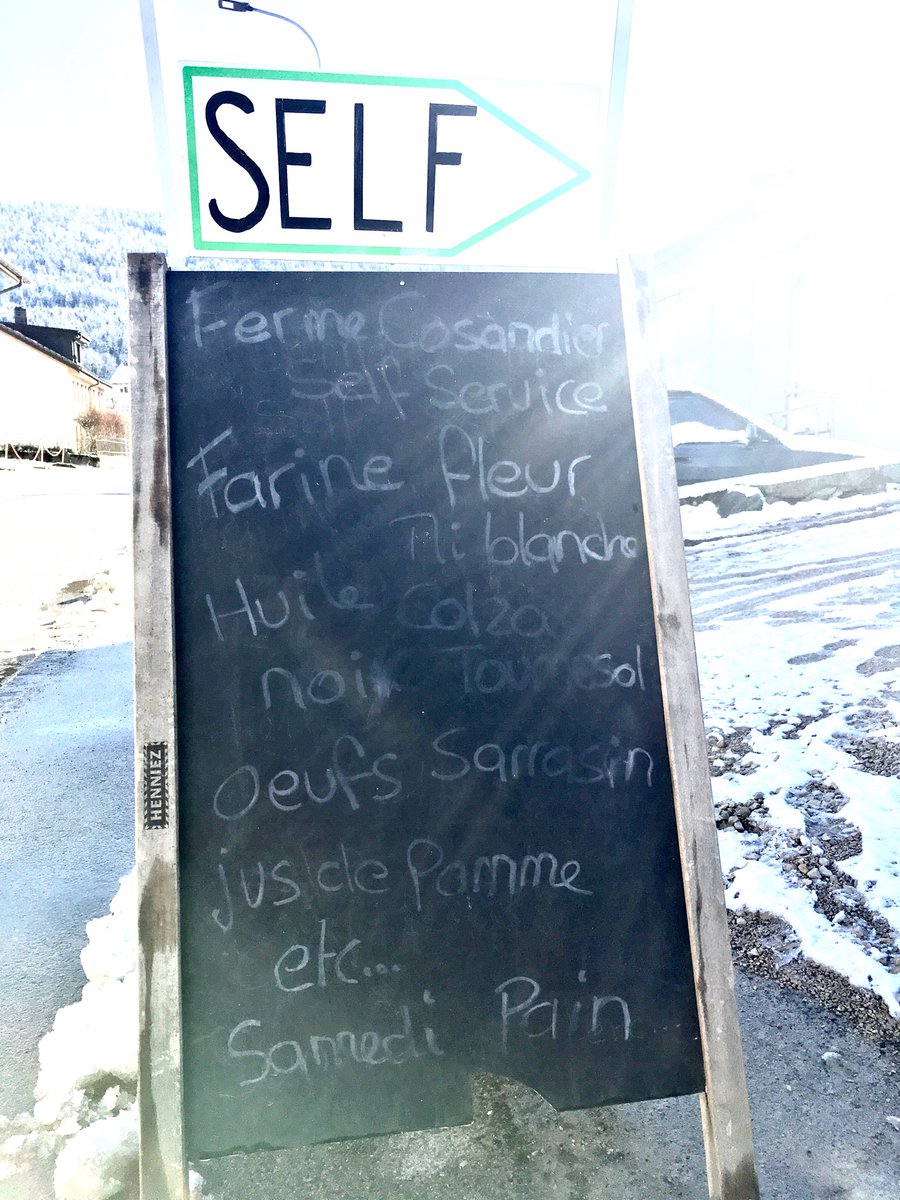 SELF
Ferme Cosandier
Self Service
Farine fleur
Mi blanche
Huile Colza
noix Tournesol
Oeufs Sarrasin
jus de Pomme
etc...
Samedi Pain
HENNIEZ